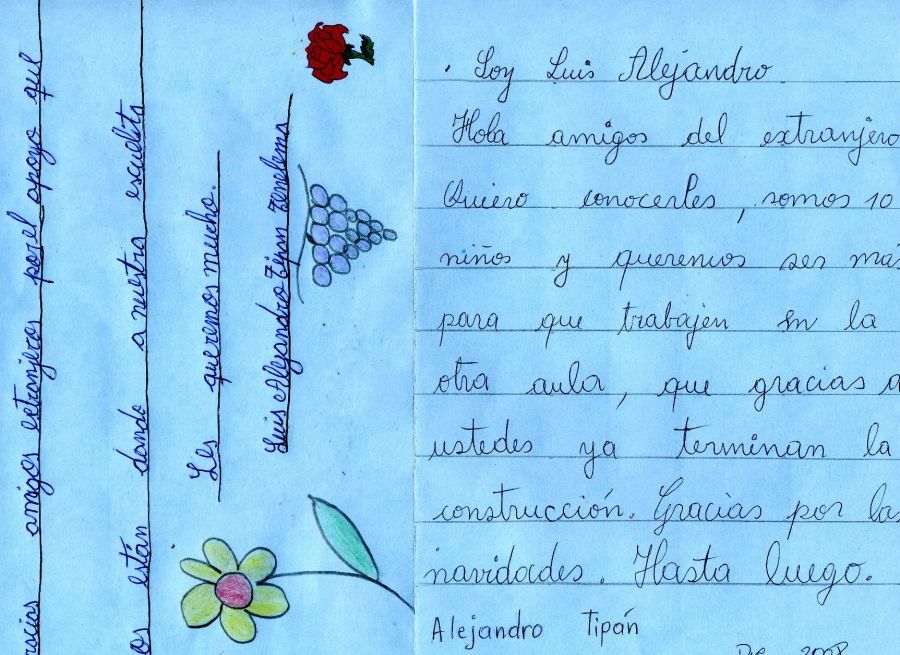 racias amigos extranjeros por el apoyo que
os están dando a nuestra escuelita
Les queremos mucho.
Luis Alejandro
. Soy Luis Alejandro
Hola amigos del extranjero
Quiero conocerles, somos 10
niños y queremos ser más
para que trabajen en la
otra aula, que gracias a
ustedes ya terminan la
construcción. Gracias por las
navidades. Hasta luego.
Alejandro Tipán
2008